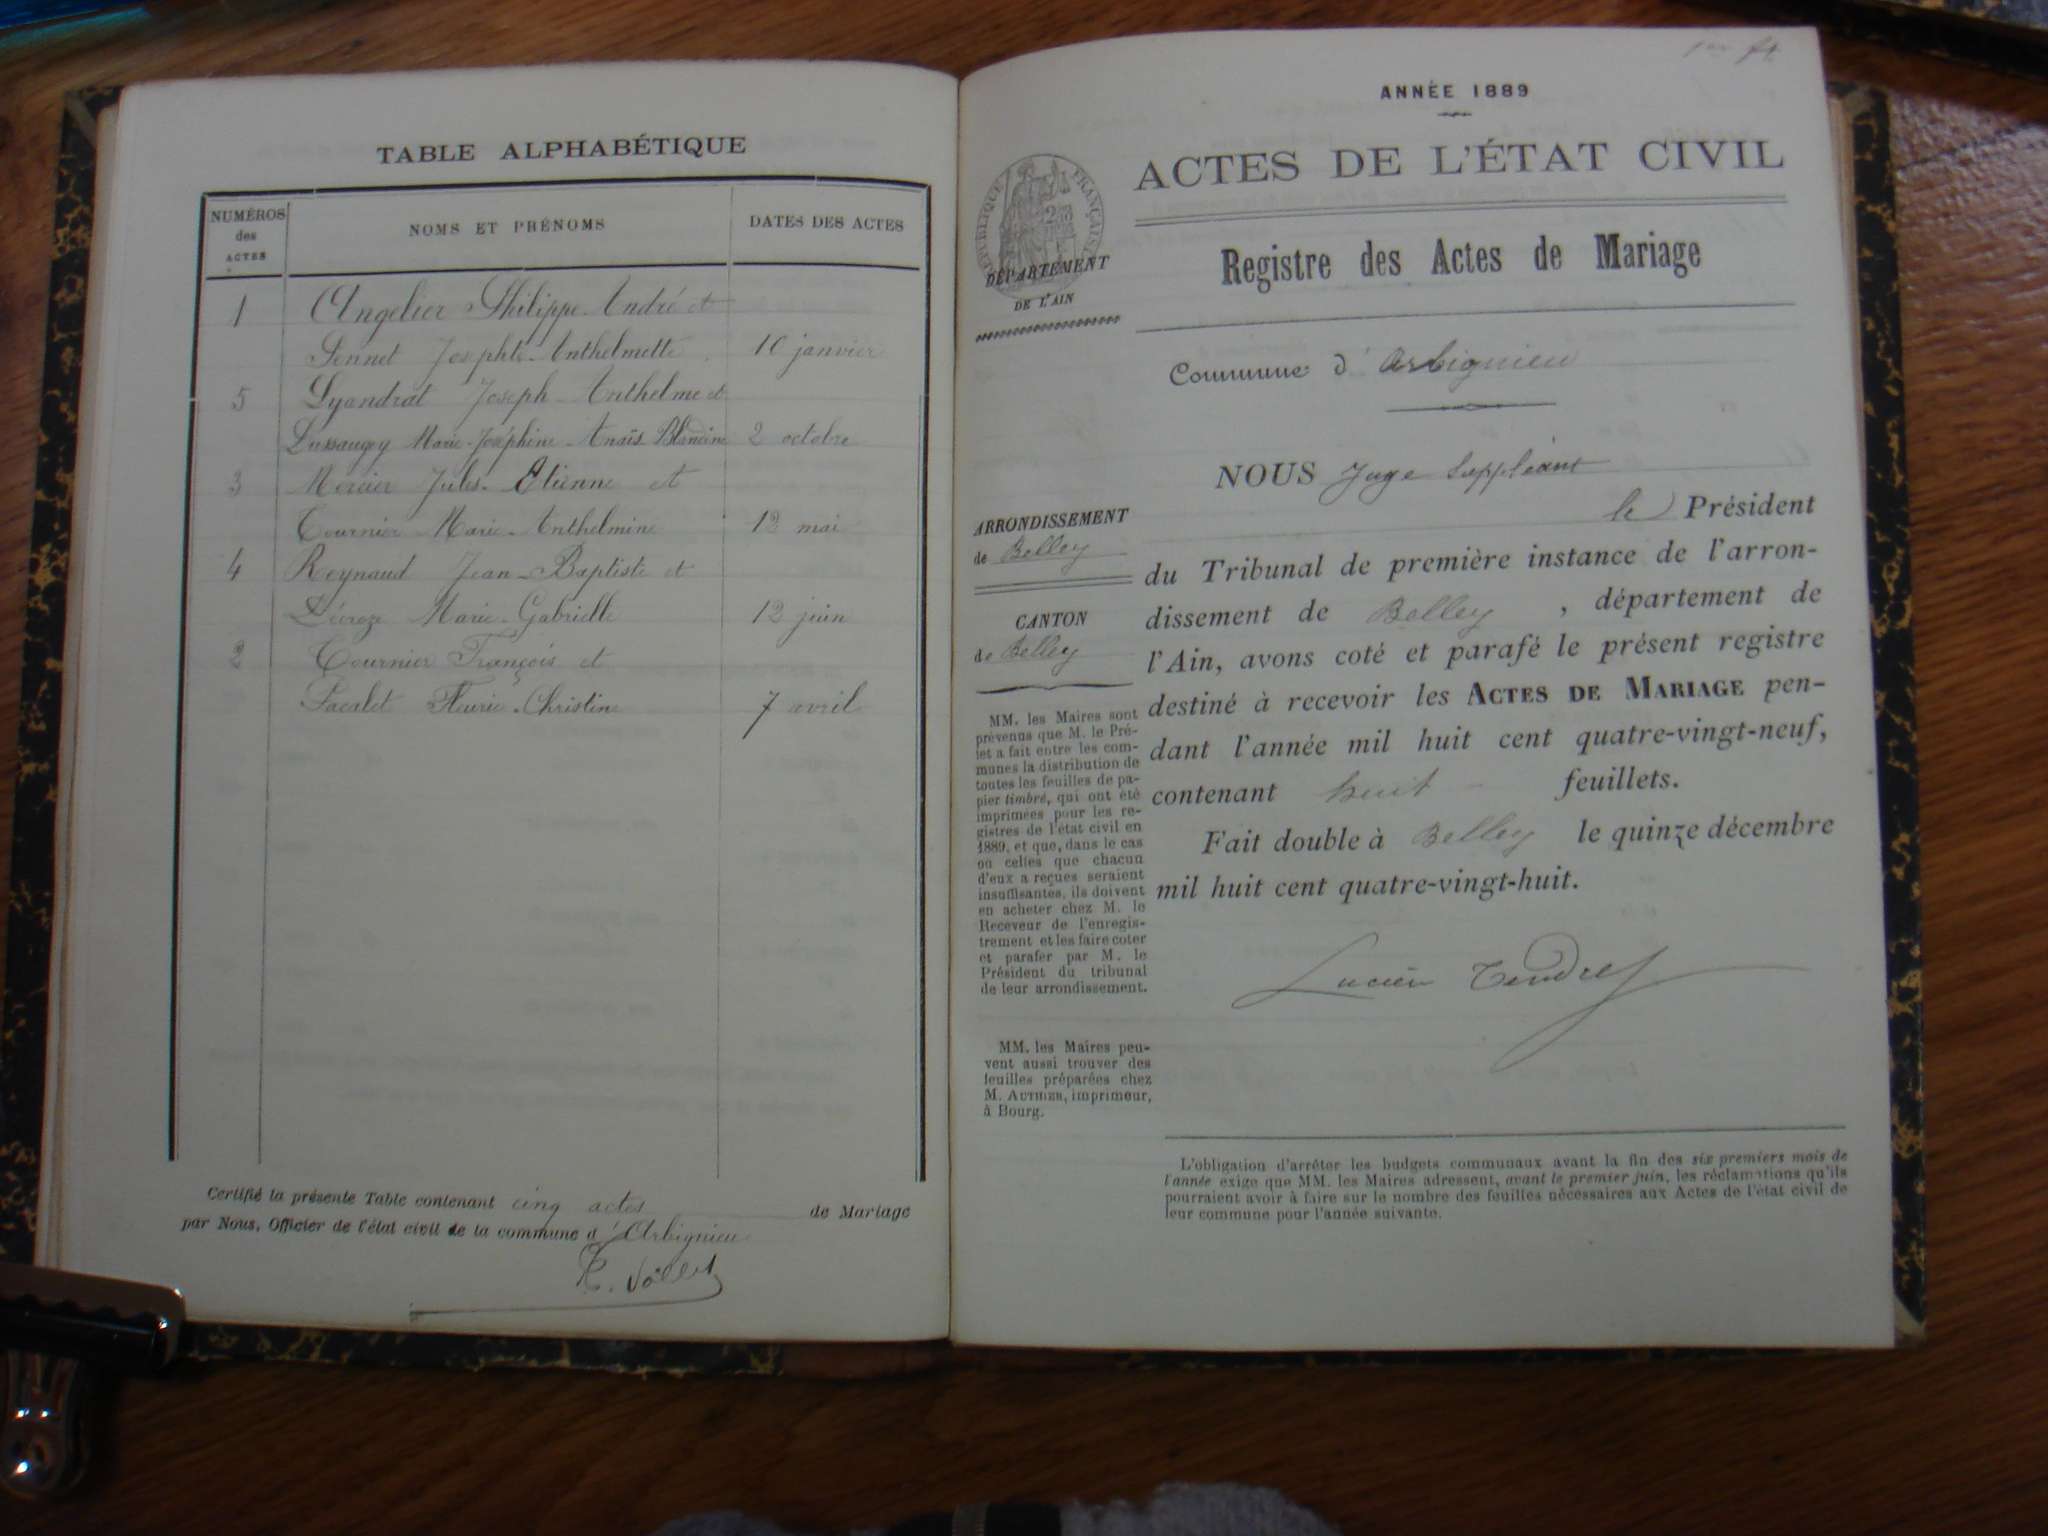 TABLE ALPHABÉTIQUE
NUMÉROS des ACTES
NOMS ET PRÉNOMS
DATES DES ACTES
1 Angelier Philippe-André et
Josephte-Anthelmette 10 janvier
5 Lyandrat Joseph-Anthelme et
Lussaugey Marie-Joséphine-Anaïs Blandine 2 octobre
3 Mercier Jules-Etienne et
Tournier Marie-Anthelmine 12 mai
4 Reynaud Jean-Baptiste et
Marie-Gabrielle 12 juin
2 Tournier François et
Pacalet Fleurie-Christine 7 avril
Certifié la présente Table contenant cinq actes de Mariage
par Nous, Officier de l'état civil de la commune d'Arbignieu
ANNÉE 1889
ACTES DE L'ÉTAT CIVIL
RÉPUBLIQUE FRANÇAISE
DÉPARTEMENT
DE L'AIN
Registre des Actes de Mariage
Commune d'Arbignieu
ARRONDISSEMENT
de Belley
CANTON
de Belley
MM. les Maires sont
prévenus que M. le Pré-
fet a fait entre les com-
munes la distribution de
toutes les feuilles de pa-
pier timbré, qui ont été
imprimées pour les re-
gistres de l'état civil en
1889, et que, dans le cas
où celles que chacun
d'eux a reçues seraient
insuffisantes, ils doivent
en acheter chez M. le
Receveur de l'enregis-
trement et les faire coter
et parafer par M. le
Président du tribunal
de leur arrondissement.
MM. les Maires peu-
vent aussi trouver des
feuilles préparées chez
M. AUTHIER, imprimeur,
à Bourg.
NOUS Juge Suppléant
le Président
du Tribunal de première instance de l'arron-
dissement de Belley, département de
l'Ain, avons coté et parafé le présent registre
destiné à recevoir les ACTES DE MARIAGE pen-
dant l'année mil huit cent quatre-vingt-neuf,
contenant huit feuillets.
Fait double à Belley le quinze décembre
mil huit cent quatre-vingt-huit.
Lucien Tendret
L'obligation d'arrêter les budgets communaux avant la fin des six premiers mois de
l'année exige que MM. les Maires adressent, avant le premier juin, les réclamations qu'ils
pourraient avoir à faire sur le nombre des feuilles nécessaires aux Actes de l'état civil de
leur commune pour l'année suivante.